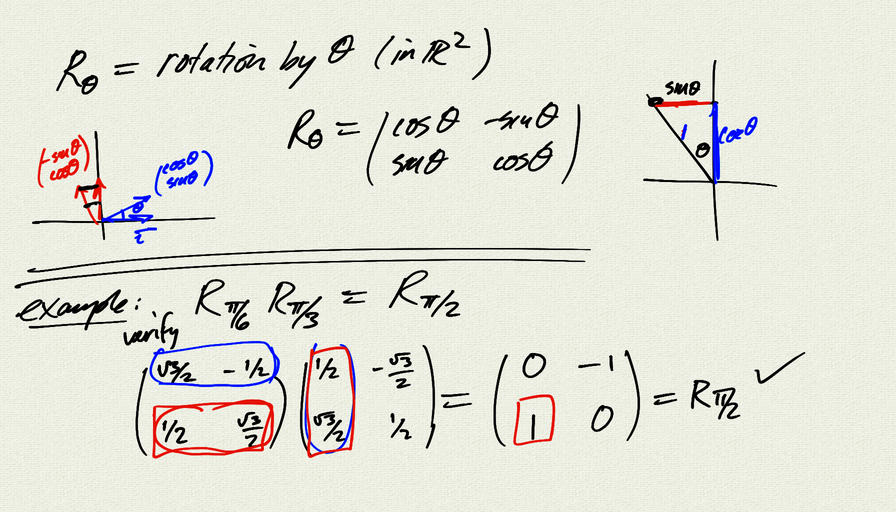 R_θ = rotation by θ (in ℝ²)
R_θ = (cosθ -sinθ
sinθ cosθ)
(-sinθ
cosθ)
(cosθ
sinθ)
θ
sinθ
1
θ
cosθ
example: R_π/6 R_π/3 = R_π/2
verify
(√3/2 -1/2
1/2 √3/2) (1/2 -√3/2
√3/2 1/2) = (0 -1
1 0) = R_π/2 ✓